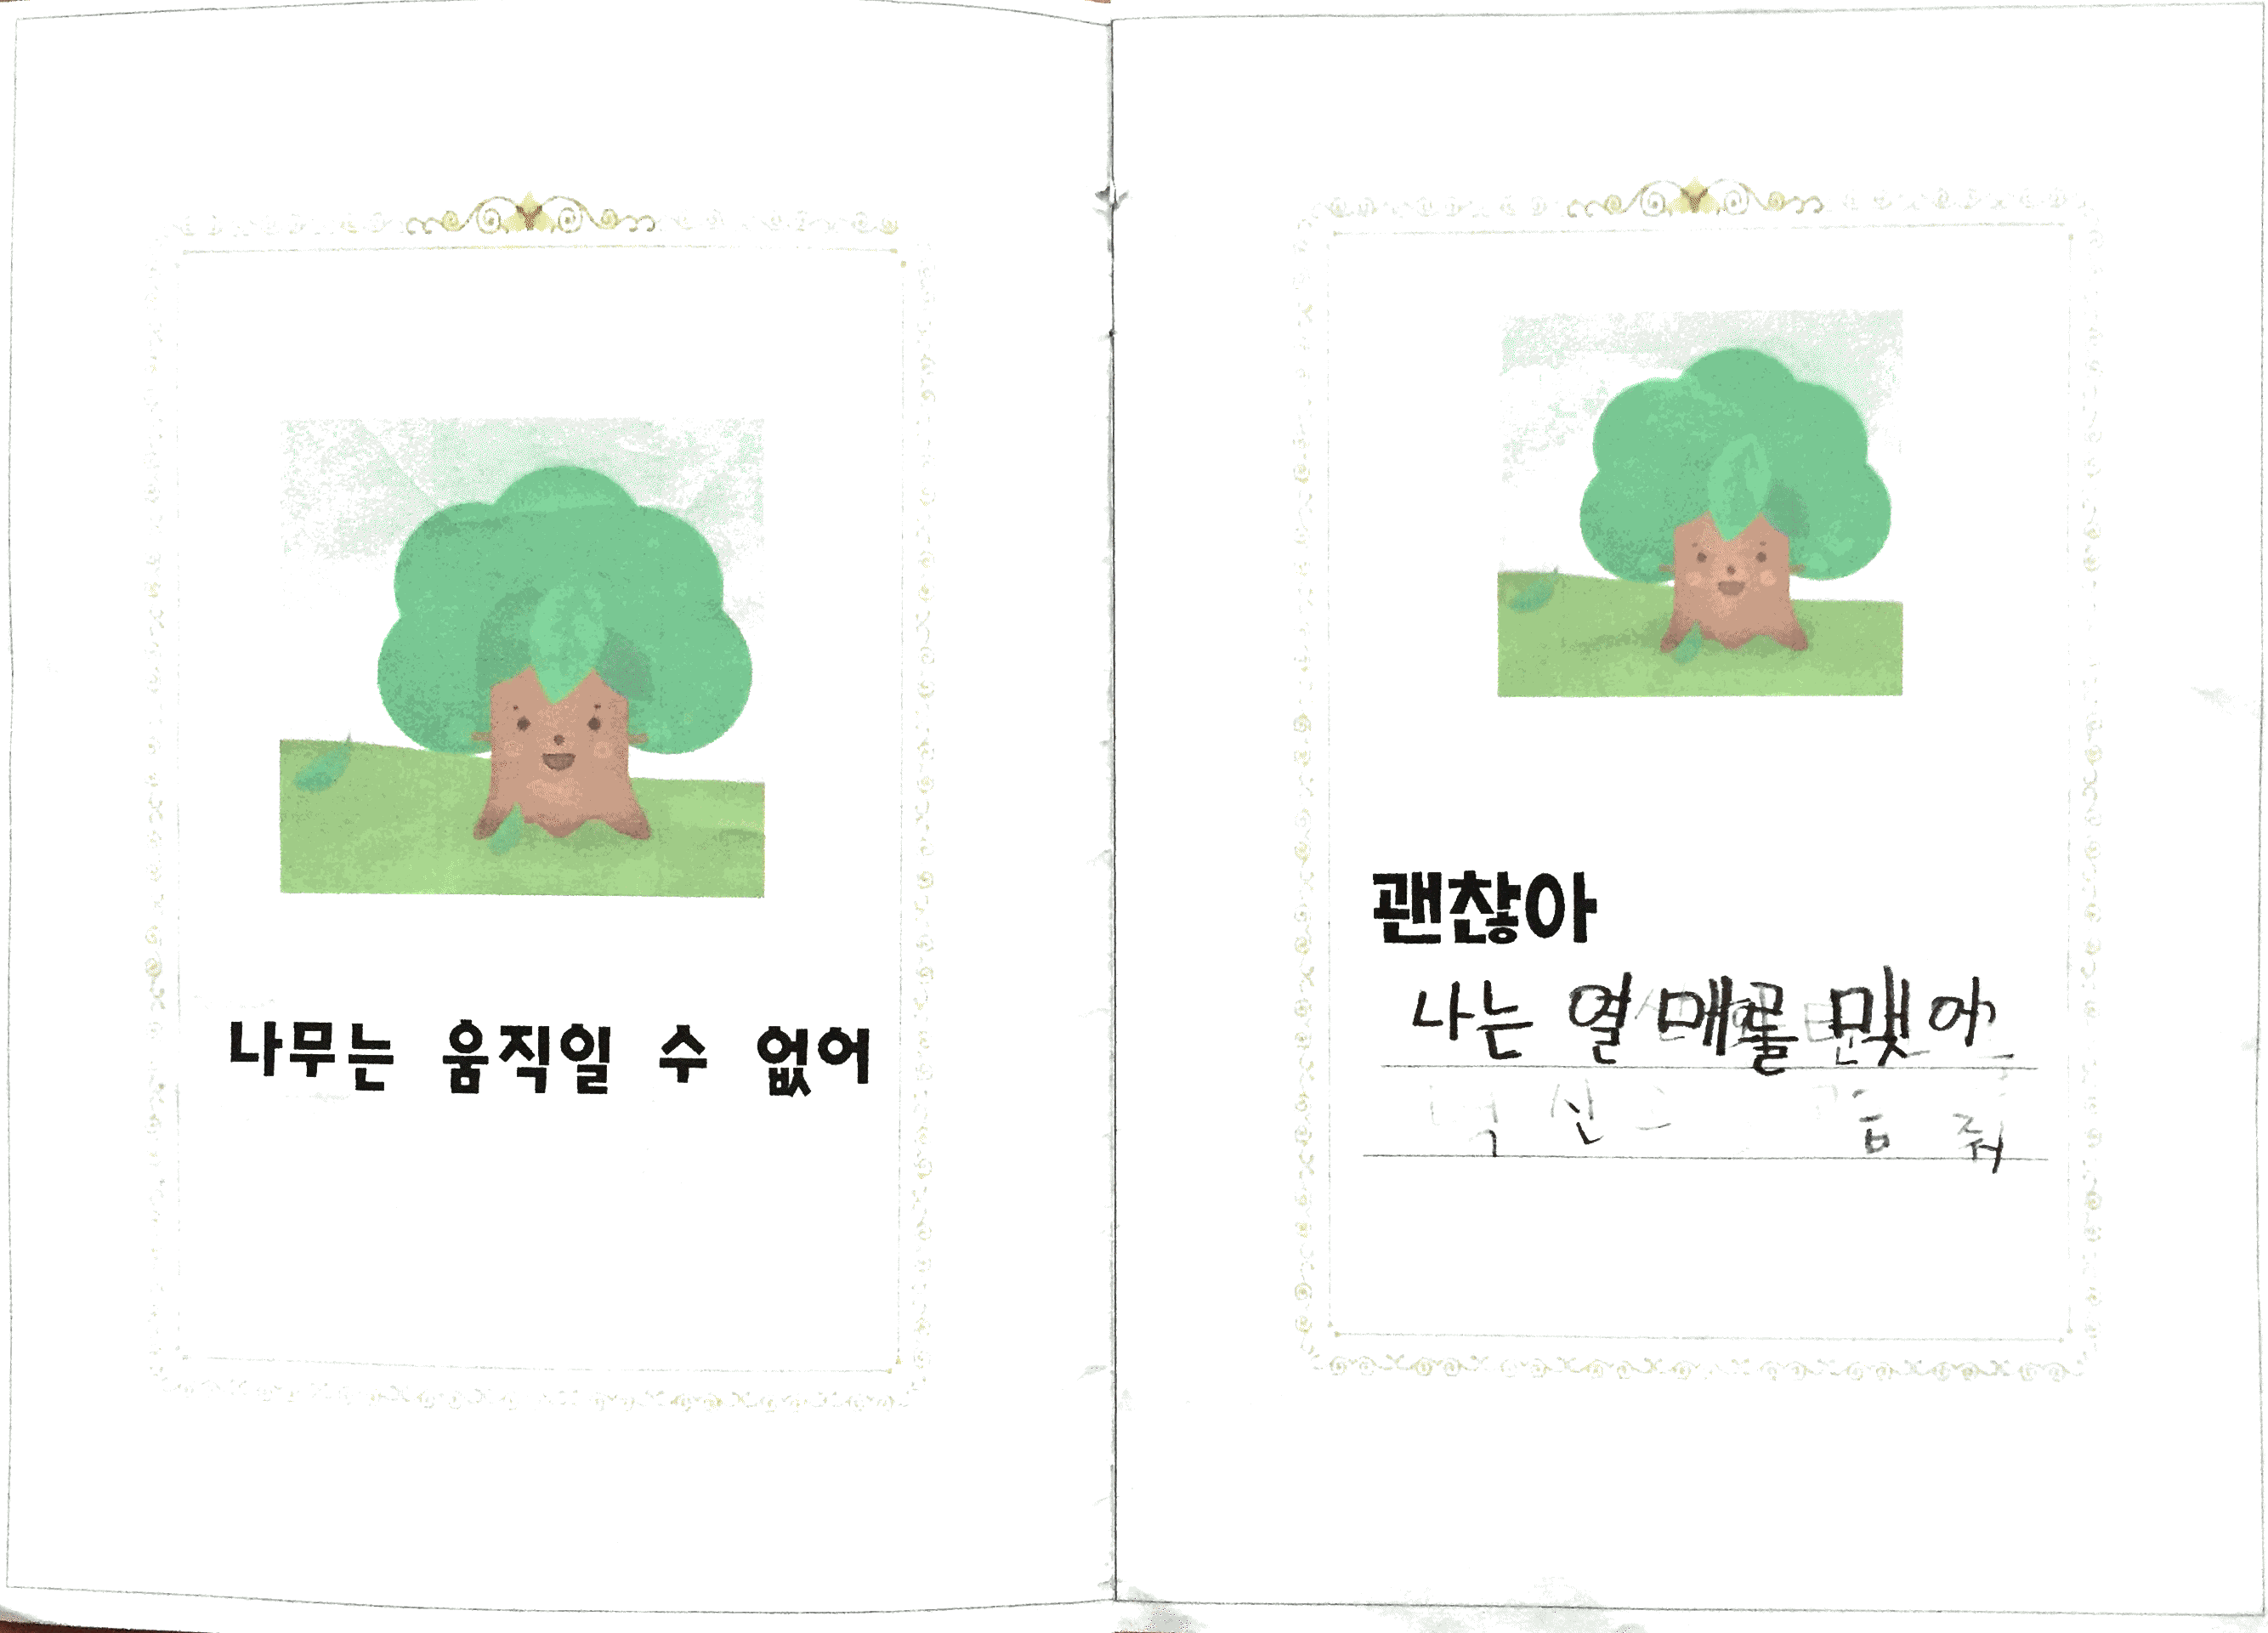 나무는 움직일 수 없어
괜찮아
나는 열매를 맺어
줘